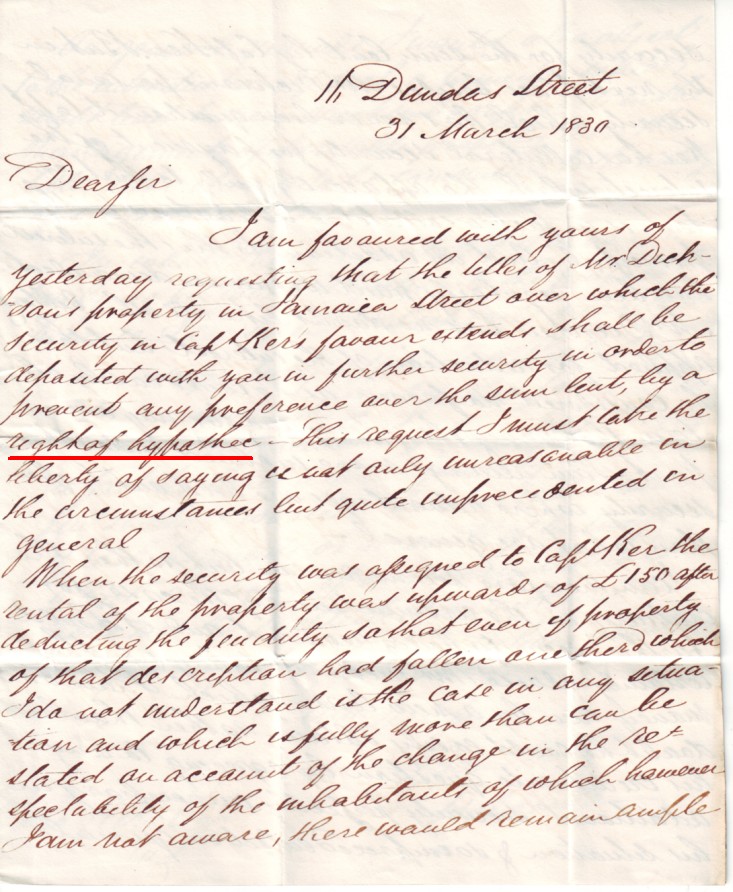 11 Dundas Street
31 March 1830
Dear Sir
I am favoured with yours of
yesterday requesting that the titles of Mr. Dick-
son's property in Jamaica Street over which the
security in Capt Ker's favour extends shall be
deposited with you in further security in order to
prevent any preference over the sum lent, by a
right of hypothec – This request I must take the
liberty of saying is not only unreasonable in
the circumstances but quite unprecedented in
general
When the security was assigned to Capt Ker the
rental of the property was upwards of £150 after
deducting the feu duty so that even if property
of that description had fallen one third which
I do not understand is the case in any situa-
tion and which is fully more than can be
stated on account of the change in the re-
spectability of the inhabitants of which however
I am not aware, there would remain ample